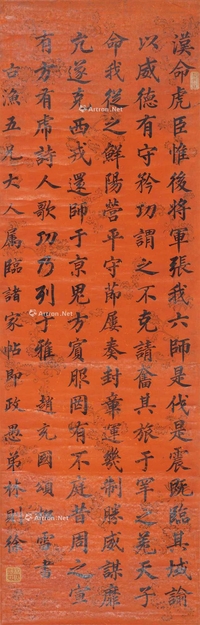 漢命虎臣惟後將軍張我六師是代是震既臨其域諭
以威德有守矜功謂之不克請奮其旅于罕之羌天子
命我從之鮮陽營平守節屢奏封章運幾制勝威謀靡
亢遂克西戎還師于京鬼方賓服罔有不庭昔周之宣
有方有虎詩人歌功乃列于雅 趙充國頌松雪書
古漁五兄大人屬臨諸家帖即政愚弟林則徐